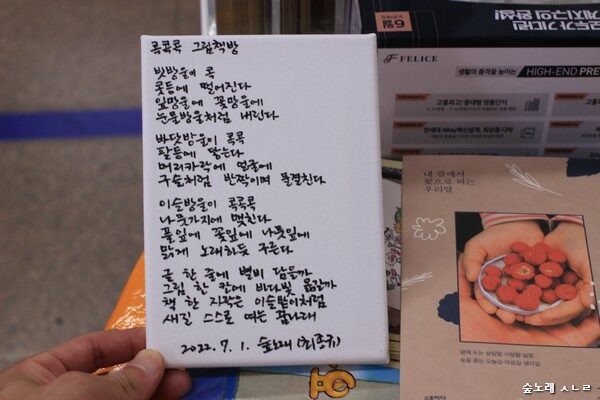 콕콕콕 그림책방
빗방울이 콕
콧등에 떨어진다
잎망울에 꽃망울에
눈물방울처럼 내린다
바닷방울이 콕콕
팔등에 닿는다
머리카락에 얼굴에
구슬처럼 반짝이며 물결친다
이슬방울이 콕콕콕
나뭇가지에 맺힌다
풀잎에 꽃잎에 나뭇잎에
맑게 노래하듯 구른다
글 한 줄에 별비 담을까
그림 한 칸에 바다빛 옮길까
책 한 자락은 이슬받이처럼
새길 스스로 여는 꿈나래
2022. 7. 1. 숲노래 (최종규)
6월
FELICE
생활의 품격을 높이는 HIGH-END PRE
고흥최고/ 중대형 명품단지
내 곁에서
꽃으로 피는
우리말
숲노래 ㅅㄴㄹ